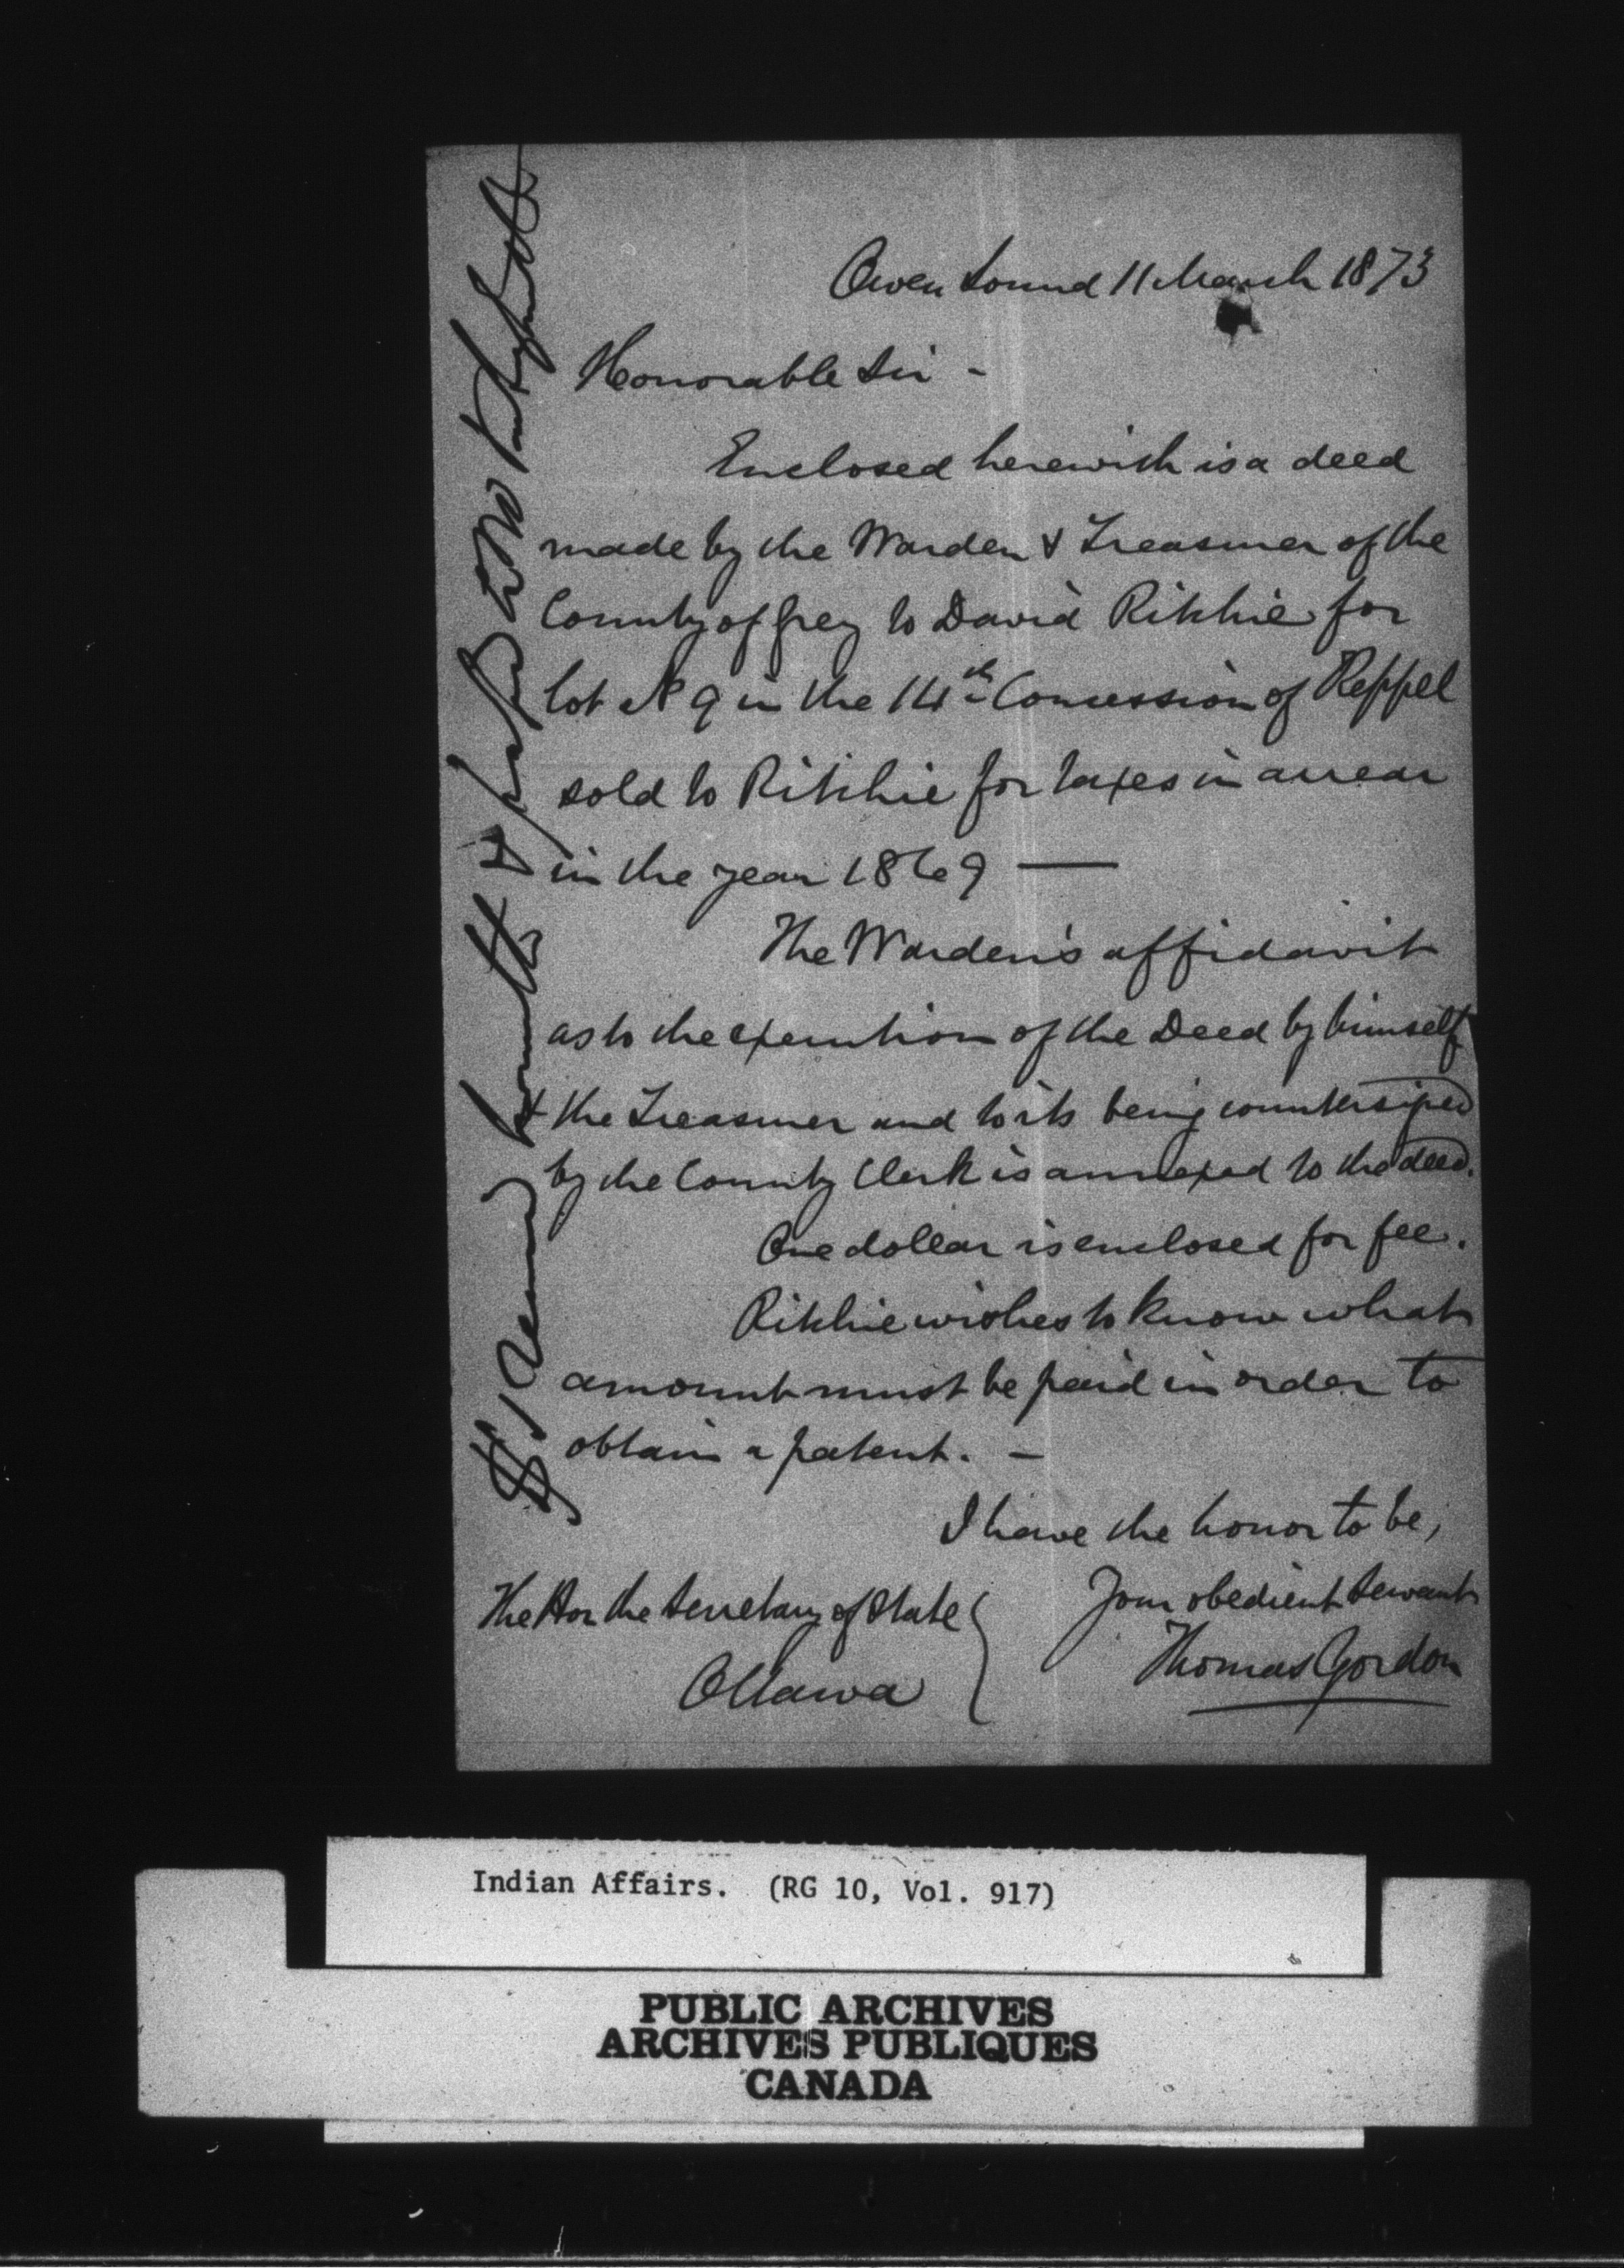 Owen Sound 11 March 1873
Honorable Sir -
Enclosed herewith is a deed
made by the Warden & Treasurer of the
County of Grey to David Ritchie for
lot No 9 in the 14th Concession of Keppel
sold to Ritchie for taxes in arrear
in the year 1869 —
The Warden's affidavit
as to the execution of the Deed by himself
& the Treasurer and to its being countersigned
by the County Clerk is annexed to the deed.
One dollar is enclosed for fee.
Ritchie wishes to know what
amount must be paid in order to
obtain a patent. -
I have the honor to be,
Your obedient Servant
Thomas Gordon
The Hon the Secretary of State
Ottawa
$1
Indian Affairs. (RG 10, Vol. 917)
PUBLIC ARCHIVES
ARCHIVES PUBLIQUES
CANADA